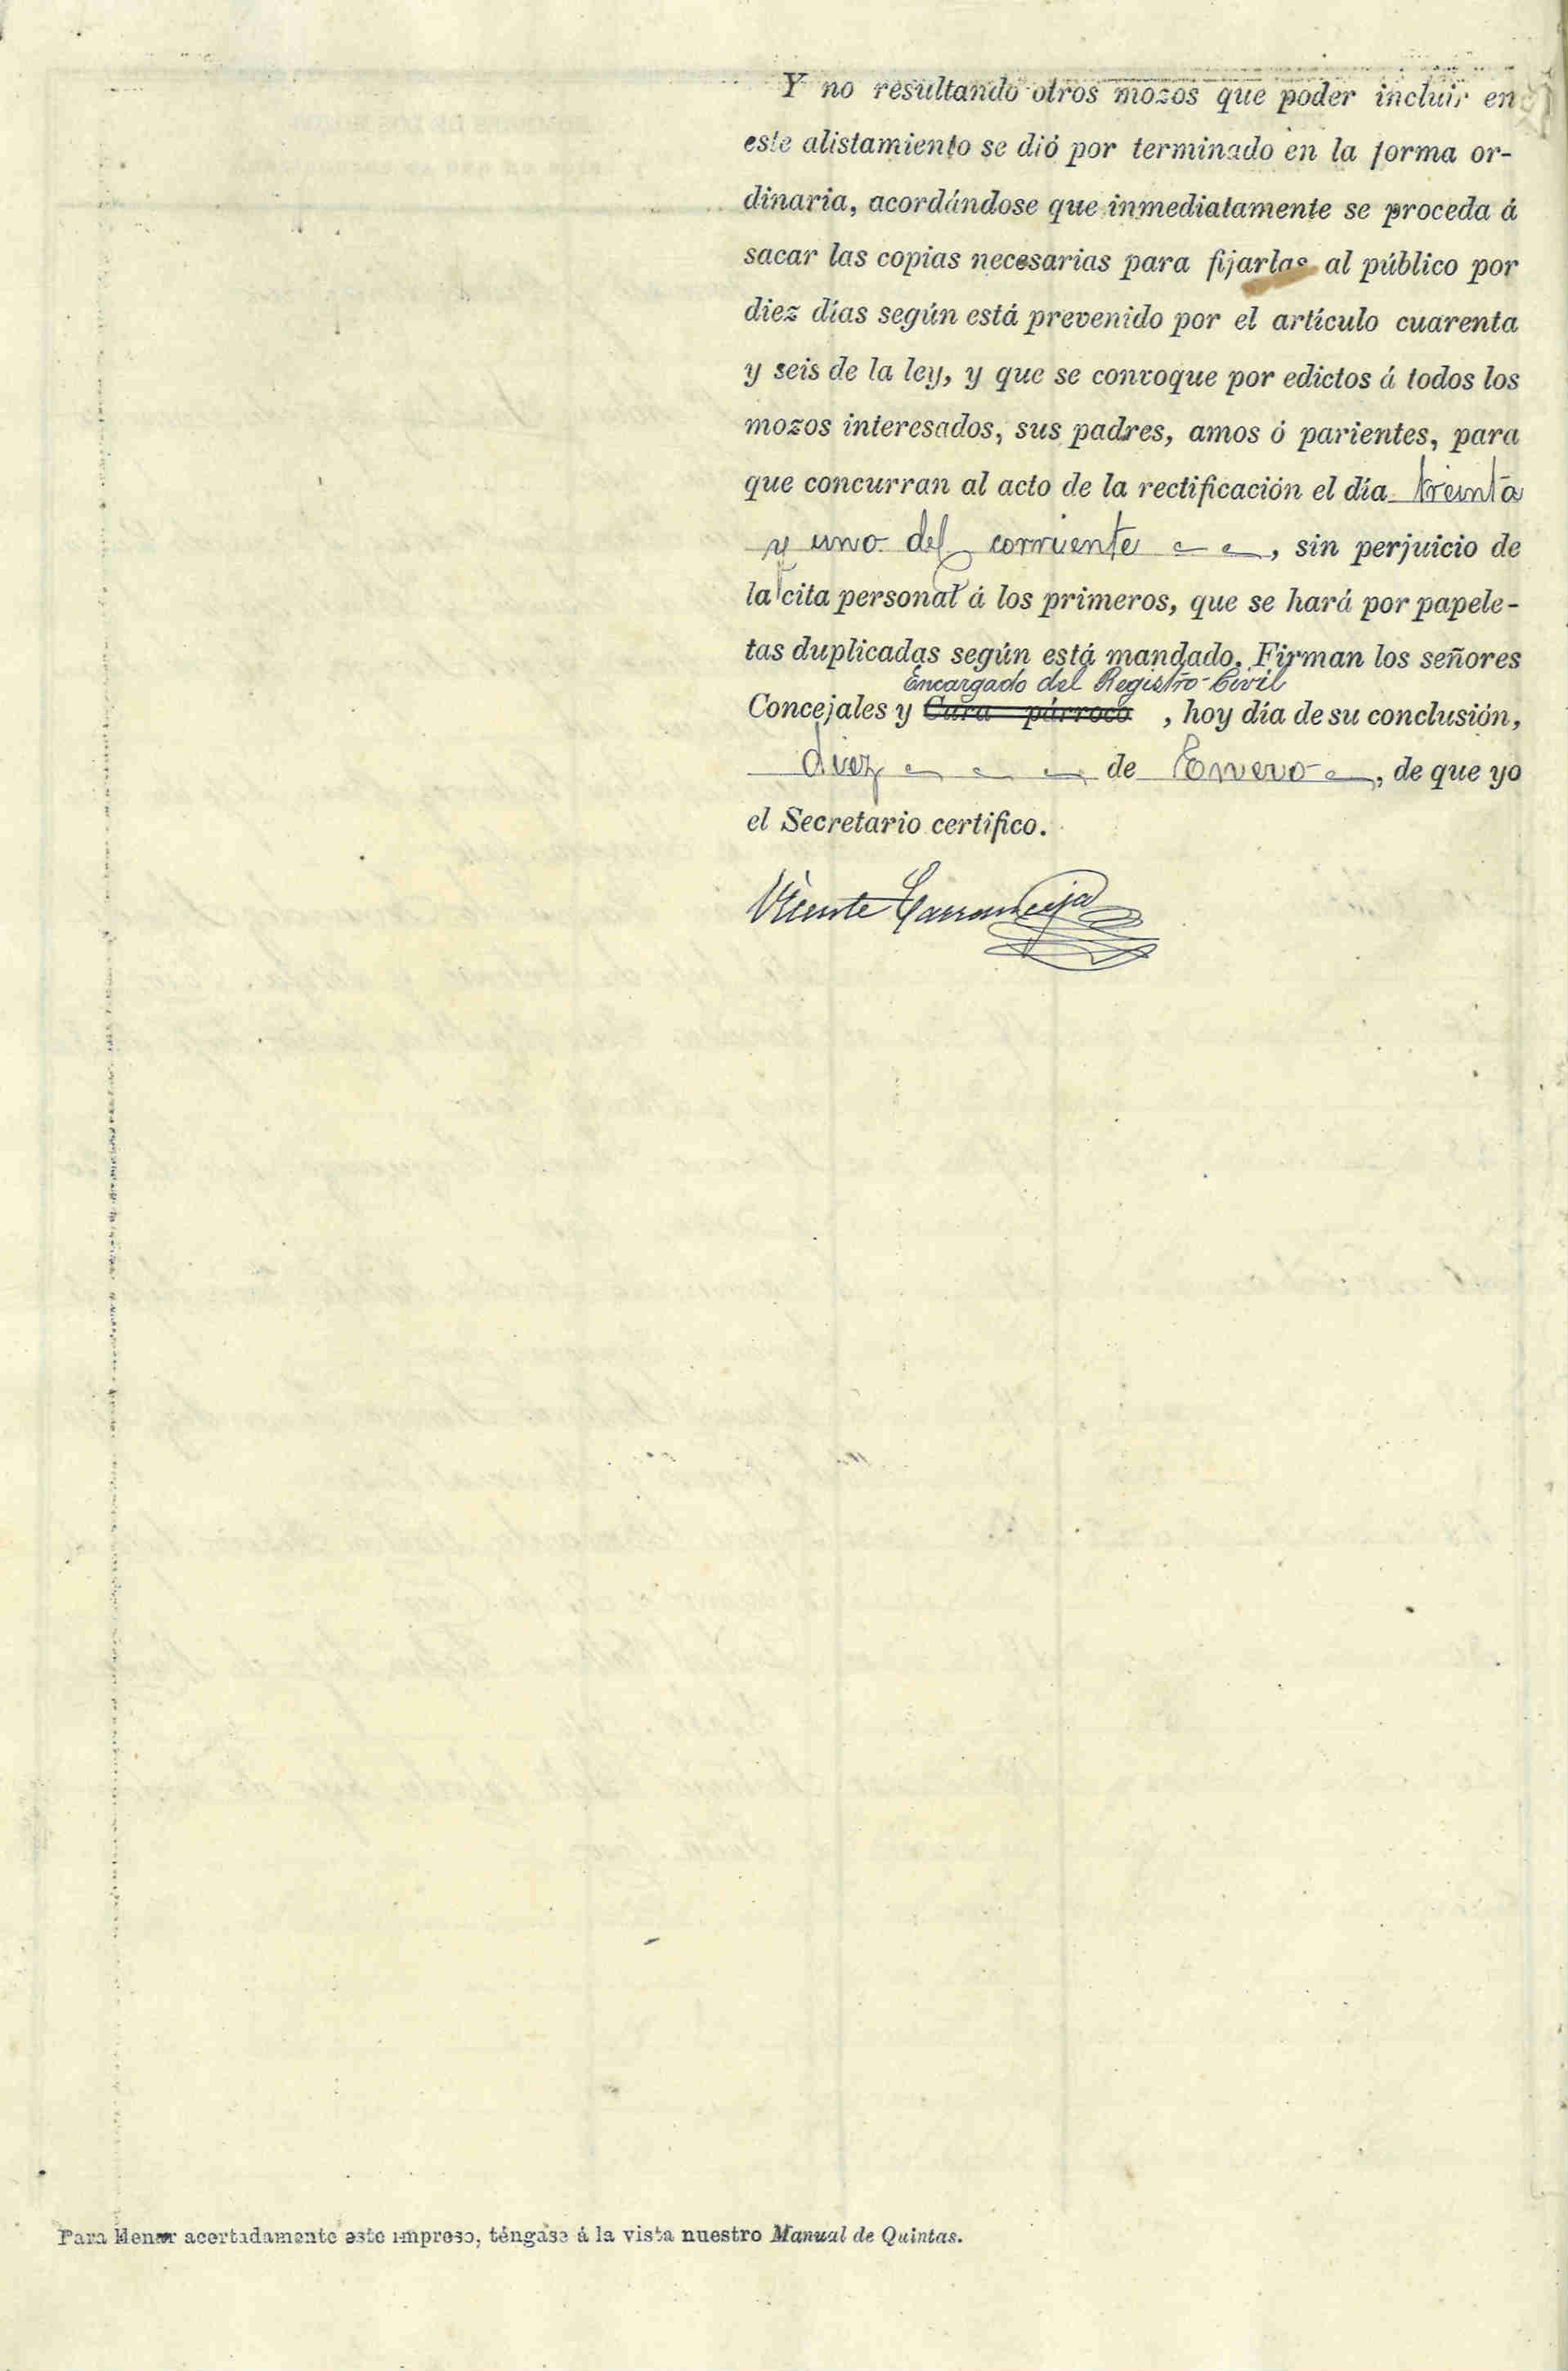 Y no resultando otros mozos que poder incluir en
este alistamiento se dió por terminado en la forma or-
dinaria, acordándose que inmediatamente se proceda á
sacar las copias necesarias para fijarlas al público por
diez días según está prevenido por el artículo cuarenta
y seis de la ley, y que se convoque por edictos á todos los
mozos interesados, sus padres, amos ó parientes, para
que concurran al acto de la rectificación el día treinta
y uno del corriente, sin perjuicio de
la cita personal á los primeros, que se hará por papele-
tas duplicadas según está mandado. Firman los señores
Encargado del Registro Civil
Concejales y Cura párroco, hoy día de su conclusión,
diez de Enero, de que yo
el Secretario certifico.
Vicente
Para llenar acertadamente este impreso, téngase á la vista nuestro Manual de Quintas.